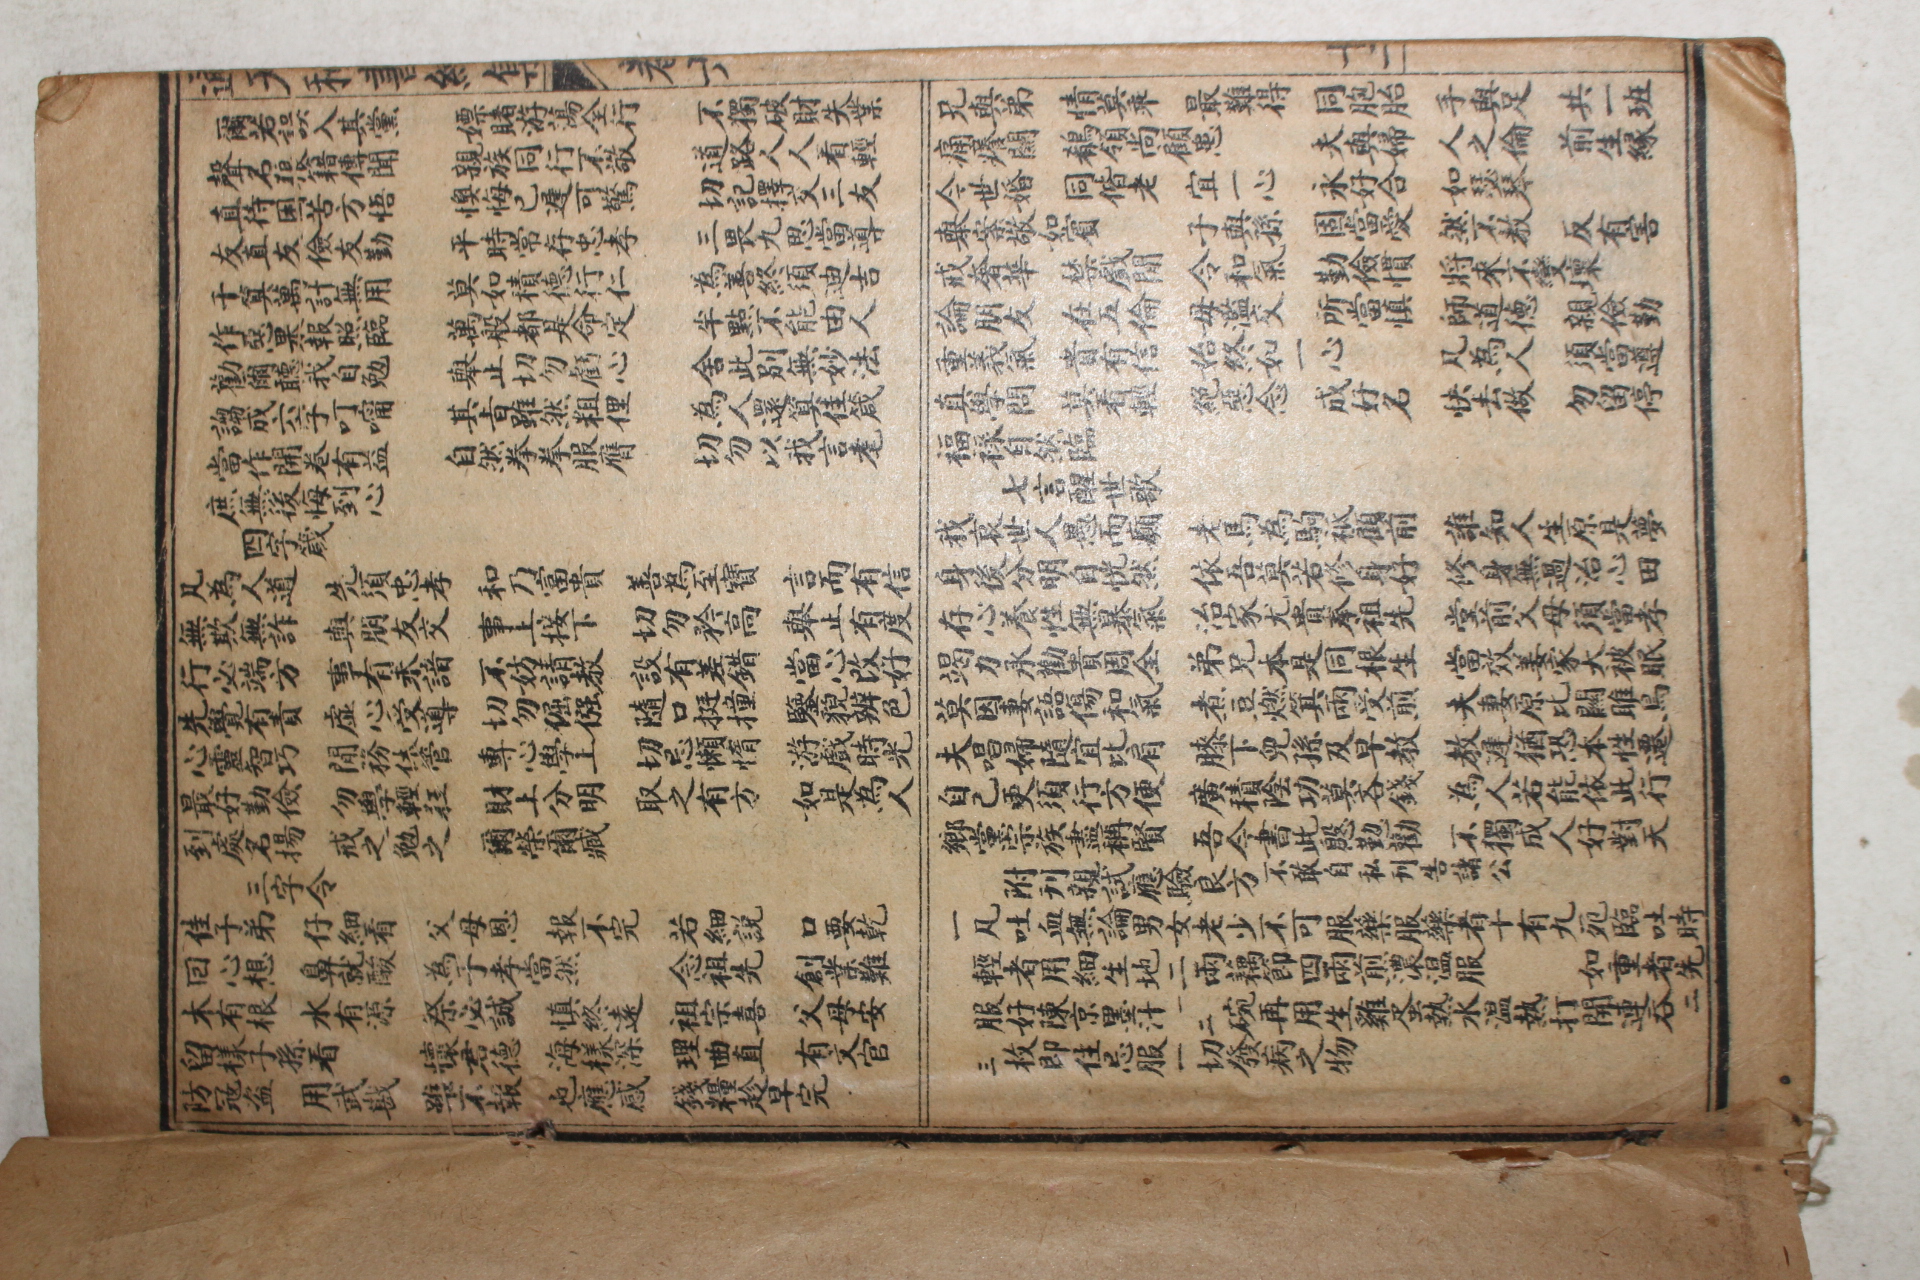 爾若誤入其黨 嫖賭游蕩全行 不獨破財失業
聲名狼籍傳聞 親族同行不敬 道路人人看輕
直待困苦方悟 懊悔已遲可驚 切記擇交三友
友直友儉友勤 平時常存忠孝 三畏九思當導
千算萬計無用 莫如積德行仁 為善終須迪吉
作惡果報照臨 萬般都是命定 半點不能由人
勸爾聽我自勉 舉止切勿虧心 舍此別無妙法
謅成六字叮嚀 其言雖然粗俚 為人還算佳箴
當作開卷有益 自然拳拳服膺 切勿以我言耄
庶無後悔到心
四字箴
凡為人道 先須忠孝 和乃富貴 善為至寶 言而有信
無欺無詐 與朋友交 事上接下 切勿矜高 舉止有度
行必端方 事有未諳 不妨請教 設有差錯 當心改好
先覺有責 虛心受導 切勿倔強 隨口挺撞 鑒貌辨色
心靈智巧 閒務休管 專心學上 切忌懶惰 游戲時光
最好勤儉 勿學輕狂 財上分明 取之有方 如是為人
到處名揚 戒之勉之 爾榮爾臧
三字令
佳子弟 仔細看 父母恩 報不完 若細說 口要乾
回心想 鼻就酸 為子孝當然 念祖先 創業難
木有根 水有源 祭必誠 慎終遠 祖宗喜 父母安
留樣子孫看 懷君德 海樣深 理曲直 有文官
防寇盜 用武戡 雖不報 也應感 錢糧趁早完
兄與弟 情莫乖 最難得 同胞胎 手與足 共一班
痛癢關 鶺領尚顧患 夫與婦 人之倫 前生緣
今世婚 同偕老 宜一心 永好合 如瑟琴
舉案敬如賓 子與孫 固當愛 然不教 反有害
戒奢華 禁戲閒 令和氣 勤儉慣 將來不變壞
論朋友 在五倫 毋濫交 所當慎 師道德 親儉勤
重義氣 貴有信 始終如一心 凡為人 須當遵
真學問 莫看輕 絕惡念 成好名 快去做 勿留停
福祿自然臨
七言醒世歌
我哀世人愚而顛 老馬為駒祇顧前 誰知人生原是夢
身後分明自恍然 依吾莫若修身好 修身無過治心田
存心養性無暴氣 治家尤貴奉祖先 堂前父母須當孝
竭力承勸貴周全 弟兄本是同根生 當效姜家大被眠
莫因妻語傷和氣 煮豆燃箕兩受煎 夫妻原比關雎鳥
夫唱婦隨宜比肩 膝下兒孫及早教 教遲猶恐本性遷
自己更須行方便 廣積陰功莫吝錢 為人若能依此行
鄉黨宗族盡稱賢 吾今書此慇勤勸 不獨成人好對天
附刊親試應驗良方 不敢自私刊告諸公
一凡吐血無論男女老少不可服藥服藥者十有九死臨吐時
輕者用細生地二兩藕節四兩煎濃溫服 如重者先
服好陳京墨汁一二碗再用生雞蛋熱水溫熱打開連吞二
三枚即佳忌服一切發病之物
卷六
十二